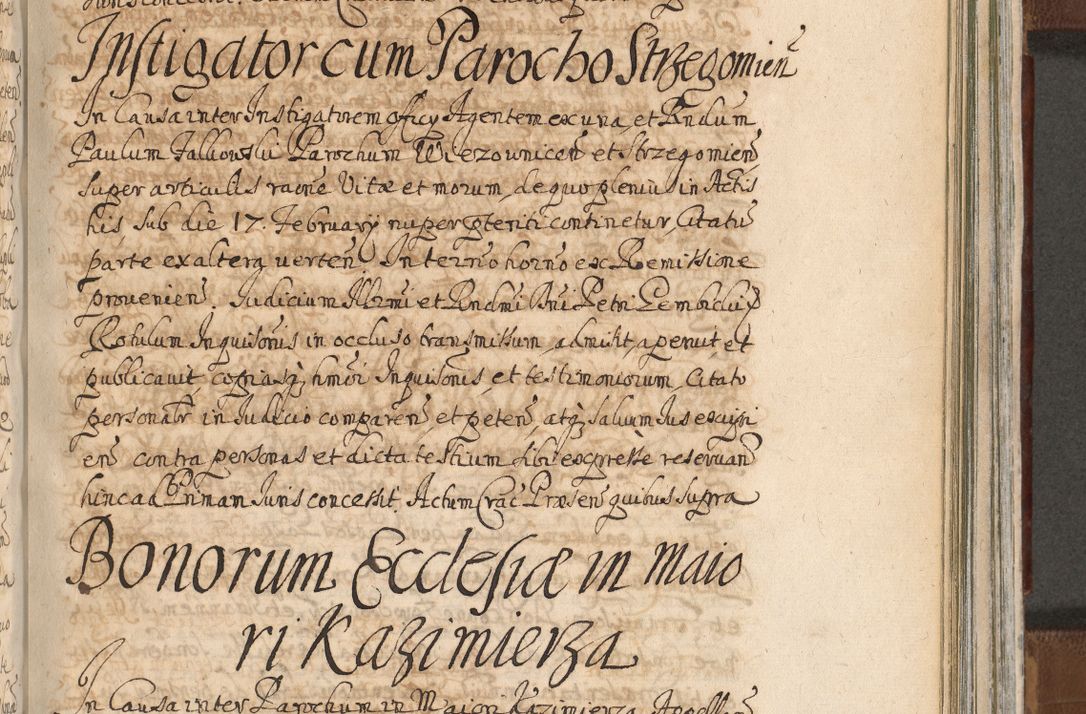 Instigator cum Parocho Strzegomień
In Causa inter Instigatorem officy Agentem ex una, et Rndum
Paulum Falkowski Parochum Wiezownicen̄ et Strzegomien̄
super articulis raõne Vitæ et morum, de quo pleniu᷑ in Actis
his sub die 17. February nuper pteriti continetur, Citatu᷑
parte ex altera verten̄. In termõ horno ex Remissione
provenien̄. Iudicium Illrmi et Rndmi Dni Petri Gembicki
Rotulum Inquisõnis in occluso transmissum, admisit, aperuit, et
publicavit, copiasq̃ hmõi Inquisõnis, et testimoniorum, Citato
personalr in Iudicio comparen̄ et peten̄, atq̃ salvum Ius excipi
en̄ contra personas et dicta testium sibi expresse reservan̄
hinc ad Primam Iuris concessit. Actum Crac̄ Præsen̄ quibus supra
Bonorum Ecclesiæ in Maio
ri Kazimierza
In Causa inter Parochum in Maiori Kazimierza Appellan̄